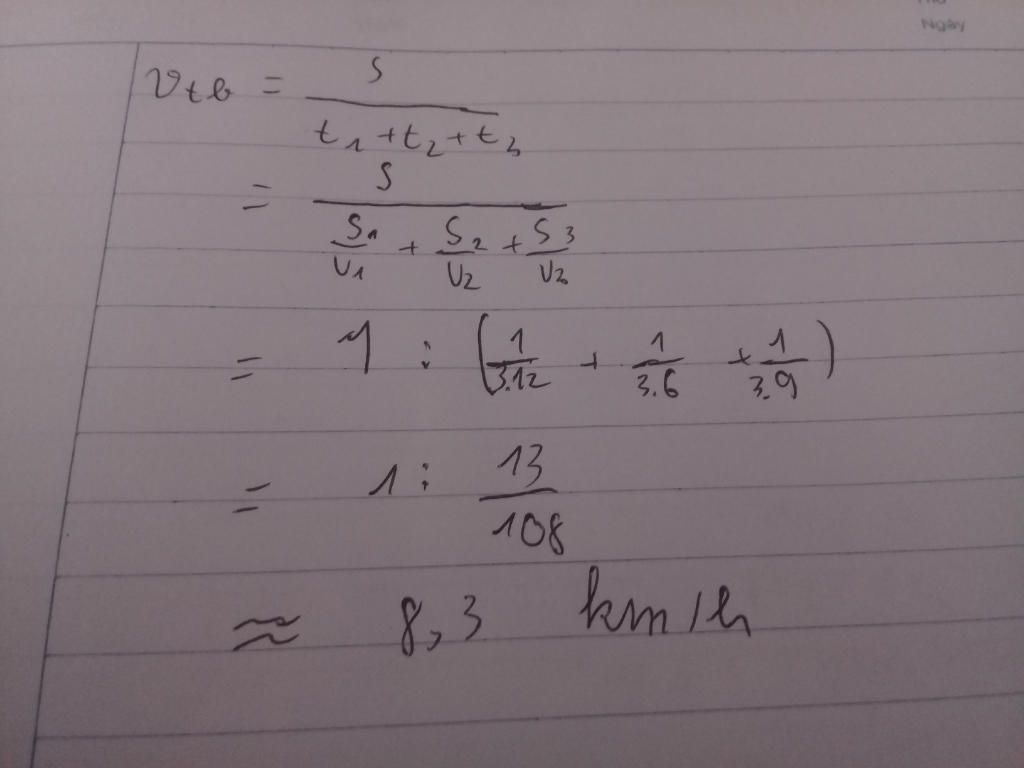 Ngày
v_tb = s / (t₁ + t₂ + t₃)
= s / (s₁/v₁ + s₂/v₂ + s₃/v₃)
= 1 : (1/3.12 + 1/3.6 + 1/3.9)
= 1 : 13/108
≈ 8,3 km/h